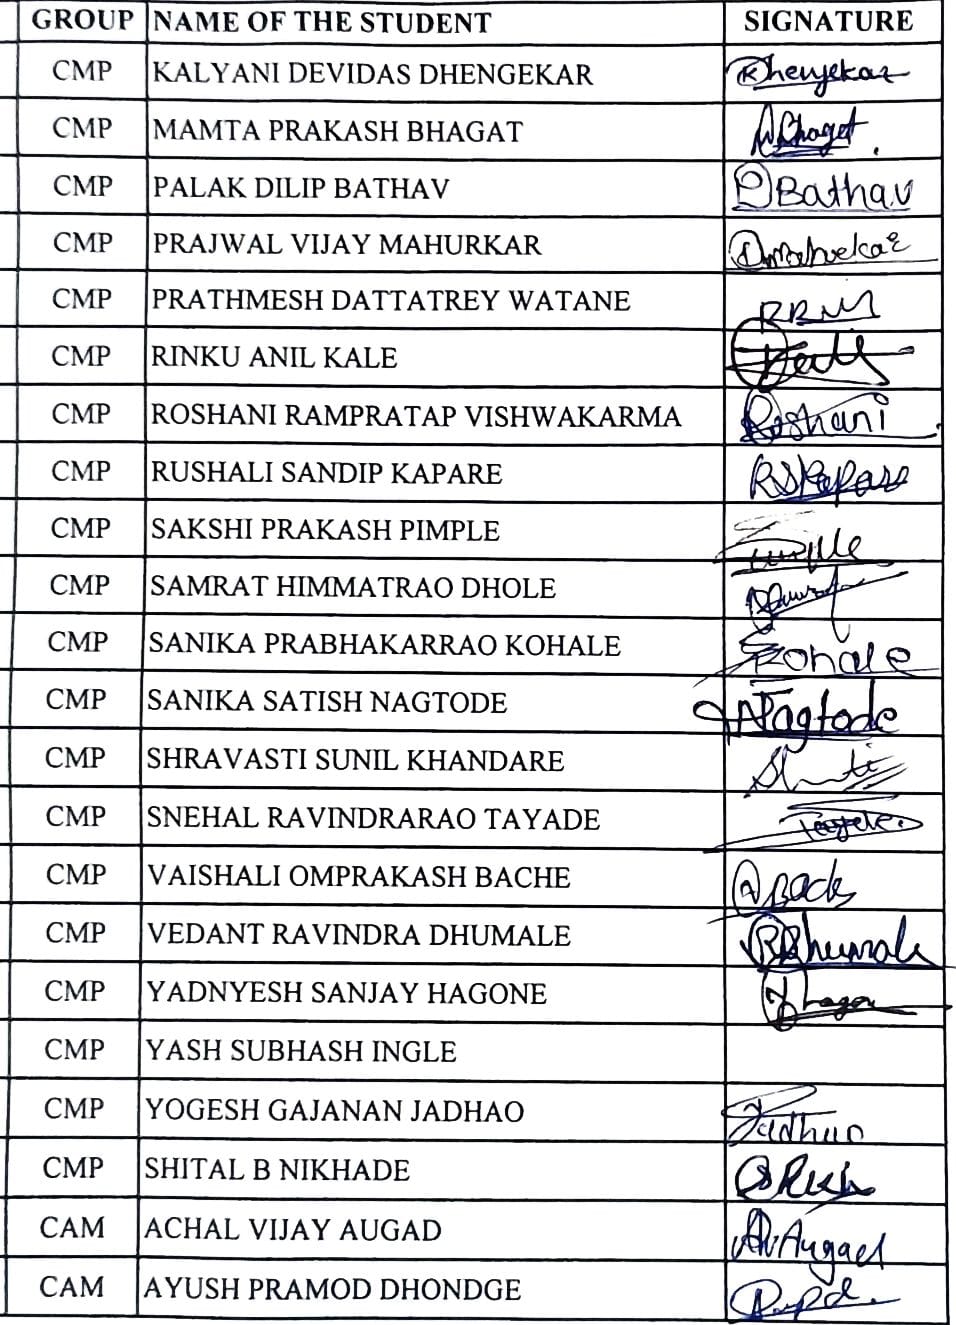 GROUP NAME OF THE STUDENT SIGNATURE
CMP KALYANI DEVIDAS DHENGEKAR Dhengekar
CMP MAMTA PRAKASH BHAGAT Bhagat
CMP PALAK DILIP BATHAV PBathav
CMP PRAJWAL VIJAY MAHURKAR
CMP PRATHMESH DATTATREY WATANE
CMP RINKU ANIL KALE
CMP ROSHANI RAMPRATAP VISHWAKARMA Roshani
CMP RUSHALI SANDIP KAPARE RSKapare
CMP SAKSHI PRAKASH PIMPLE
CMP SAMRAT HIMMATRAO DHOLE
CMP SANIKA PRABHAKARRAO KOHALE Kohale
CMP SANIKA SATISH NAGTODE Nagtode
CMP SHRAVASTI SUNIL KHANDARE
CMP SNEHAL RAVINDRARAO TAYADE
CMP VAISHALI OMPRAKASH BACHE
CMP VEDANT RAVINDRA DHUMALE
CMP YADNYESH SANJAY HAGONE
CMP YASH SUBHASH INGLE
CMP YOGESH GAJANAN JADHAO
CMP SHITAL B NIKHADE
CAM ACHAL VIJAY AUGAD
CAM AYUSH PRAMOD DHONDGE